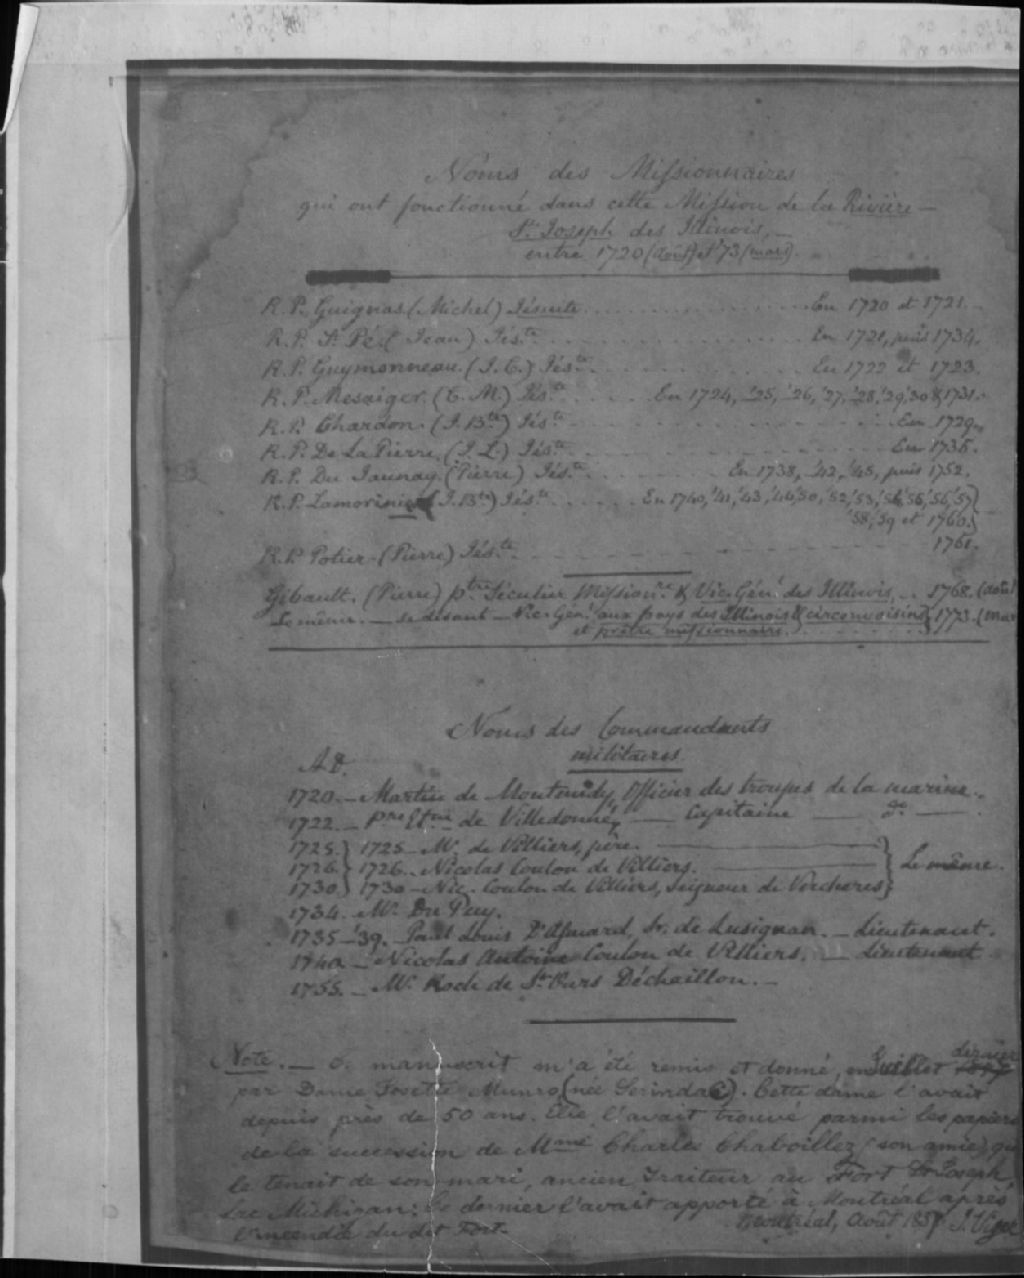 Noms des Missionnaires
qui ont fonctionné dans cette Mission de la Rivière —
St. Joseph des Illinois, —
entre 1720 (août) et '73 (mars).
R. P. Guignas (Michel) Jésuite . . . En 1720 et 1721.
R. P. St. Pé (Jean) Jéste . . . En 1721, puis 1734.
R. P. Guymonneau (J. C.) Jéste . . . En 1722 et 1723.
R. P. Mesaiger (C. M.) Jéste . . . En 1724, '25, '26, '27, '28, '29, '30 & 1731.
R. P. Chardon (J. Bte) Jéste . . . En 1729.
R. P. De La Pierre (J. L.) Jéste . . . En 1735.
R. P. Du Jaunay (Pierre) Jéste . . . En 1738, '42, '45, puis 1752.
R. P. Lamorinie (J. Bte) Jéste . . . En 1740, '41, '43, '44, '50, '52, '53, '54, '55, '56, '57
'58, '59 et 1760.
R. P. Potier (Pierre) Jéste . . . 1761.
Gibault (Pierre) ptre Séculier Missionre & Vic. Génl des Illinois, . . 1768. (août)
Le même — se disant — Vic. Génl aux pays des Illinois & circonvoisins 1773. (mar
et prêtre missionnaire.
Noms des Commandants
militaires
A.D.
1720. — Martin de Montmidy, Officier des troupes de la marine.
1722. — Pre Etne de Villedonney — Capitaine — do —
1725. } 1725 — Mr. de Villiers, père. —
1726. } 1726 — Nicolas Coulon de Villiers. — } Le même.
1730. } 1730 — Nic. Coulon de Villiers, Seigneur de Verchères
1734. Mr. Du Puy.
1735-'39. Paul Louis D'Asmard, Sr. de Lusignan. — Lieutenant.
1740. — Nicolas Antoine Coulon de Villiers. — Lieutenant
1755. — Mr. Roch de St. Ours Déchaillon. —
Note. — Ce manuscrit m'a été remis et donné, en Juillet dernier
par Dame Josette Munro (née ). Cette dame l'avait
depuis près de 50 ans. Elle l'avait trouvé parmi les papiers
de la succession de Mme Charles Chaboillez (son amie) qui
le tenait de son mari, ancien Traiteur au Fort St. Joseph,
Lac Michigan: Ce dernier l'avait apporté à Montréal après
l'incendie du dit Fort.
Montréal, Août 1857 J. Viger